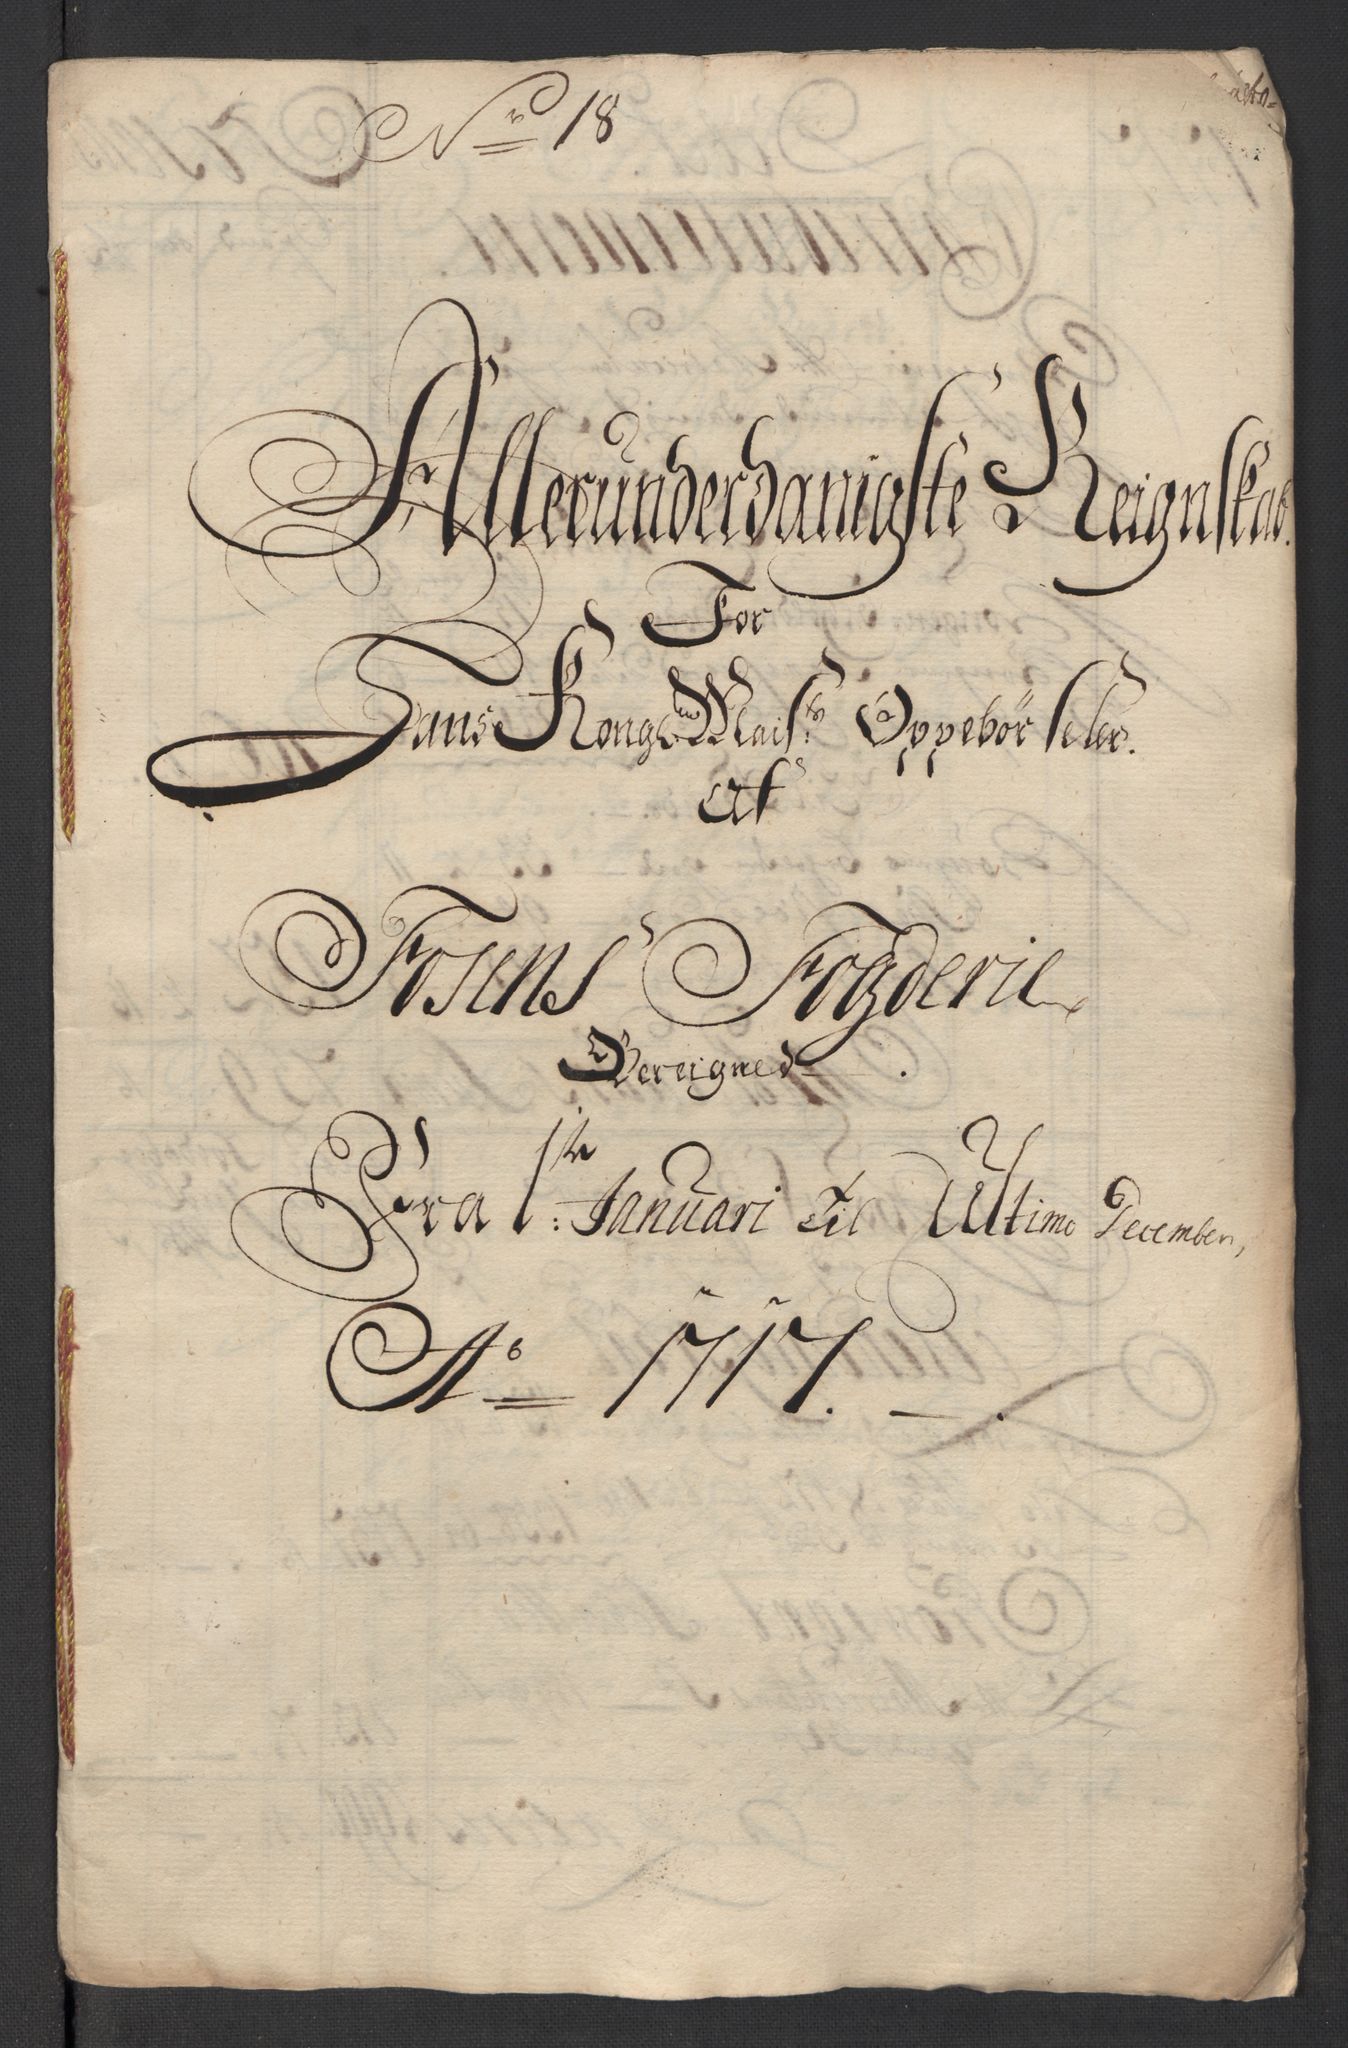 No 18
Allerunderdanigste Reignskab.
For
Hans Kongl Mais:ts Oppebörseler.
Af
Fosens Fogderie
Bereigned.
Fra 1:te Januari til Ultimo December,
Ao 1717.